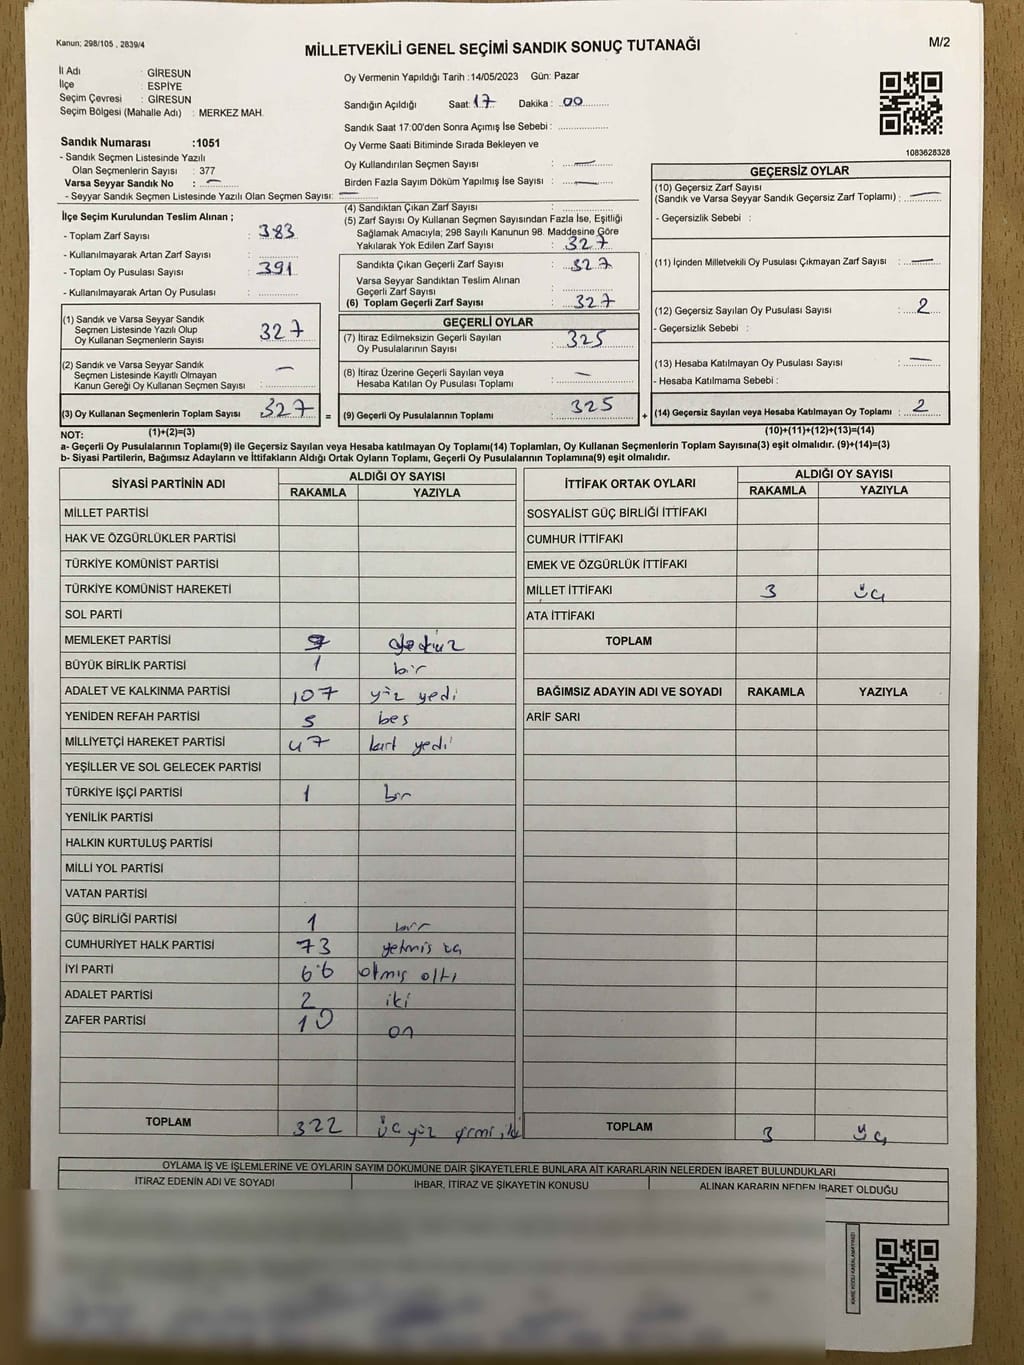 Kanun: 298/105 , 2839/4
MİLLETVEKİLİ GENEL SEÇİMİ SANDIK SONUÇ TUTANAĞI
M/2
İl Adı : GİRESUN
İlçe : ESPİYE
Seçim Çevresi : GİRESUN
Seçim Bölgesi (Mahalle Adı) : MERKEZ MAH.
Oy Vermenin Yapıldığı Tarih :14/05/2023 Gün: Pazar
Sandığın Açıldığı Saat: 17 Dakika : 00
Sandık Saat 17:00'den Sonra Açımış İse Sebebi :
Oy Verme Saati Bitiminde Sırada Bekleyen ve
Oy Kullandırılan Seçmen Sayısı : —
Birden Fazla Sayım Döküm Yapılmış İse Sayısı : —
1083628328
Sandık Numarası :1051
- Sandık Seçmen Listesinde Yazılı
Olan Seçmenlerin Sayısı : 377
Varsa Seyyar Sandık No : —
- Seyyar Sandık Seçmen Listesinde Yazılı Olan Seçmen Sayısı: —
İlçe Seçim Kurulundan Teslim Alınan ;
- Toplam Zarf Sayısı : 383
- Kullanılmayarak Artan Zarf Sayısı :
- Toplam Oy Pusulası Sayısı : 391
- Kullanılmayarak Artan Oy Pusulası :
(1) Sandık ve Varsa Seyyar Sandık
Seçmen Listesinde Yazılı Olup
Oy Kullanan Seçmenlerin Sayısı : 327
(2) Sandık ve Varsa Seyyar Sandık
Seçmen Listesinde Kayıtlı Olmayan
Kanun Gereği Oy Kullanan Seçmen Sayısı : —
(3) Oy Kullanan Seçmenlerin Toplam Sayısı : 327 =
(1)+(2)=(3)
(4) Sandıktan Çıkan Zarf Sayısı :
(5) Zarf Sayısı Oy Kullanan Seçmen Sayısından Fazla İse, Eşitliği
Sağlamak Amacıyla; 298 Sayılı Kanunun 98. Maddesine Göre
Yakılarak Yok Edilen Zarf Sayısı : 327
Sandıkta Çıkan Geçerli Zarf Sayısı : 327
Varsa Seyyar Sandıktan Teslim Alınan
Geçerli Zarf Sayısı :
(6) Toplam Geçerli Zarf Sayısı : 327
GEÇERLİ OYLAR
(7) İtiraz Edilmeksizin Geçerli Sayılan
Oy Pusulalarının Sayısı : 325
(8) İtiraz Üzerine Geçerli Sayılan veya
Hesaba Katılan Oy Pusulası Toplamı : —
(9) Geçerli Oy Pusulalarının Toplamı : 325 +
GEÇERSİZ OYLAR
(10) Geçersiz Zarf Sayısı
(Sandık ve Varsa Seyyar Sandık Geçersiz Zarf Toplamı) : —
- Geçersizlik Sebebi :
(11) İçinden Milletvekili Oy Pusulası Çıkmayan Zarf Sayısı : —
(12) Geçersiz Sayılan Oy Pusulası Sayısı : 2
- Geçersizlik Sebebi :
(13) Hesaba Katılmayan Oy Pusulası Sayısı : —
- Hesaba Katılmama Sebebi :
(14) Geçersiz Sayılan veya Hesaba Katılmayan Oy Toplamı : 2
(10)+(11)+(12)+(13)=(14)
NOT:
a- Geçerli Oy Pusulalarının Toplamı(9) ile Geçersiz Sayılan veya Hesaba katılmayan Oy Toplamı(14) Toplamları, Oy Kullanan Seçmenlerin Toplam Sayısına(3) eşit olmalıdır. (9)+(14)=(3)
b- Siyasi Partilerin, Bağımsız Adayların ve İttifakların Aldığı Ortak Oyların Toplamı, Geçerli Oy Pusulalarının Toplamına(9) eşit olmalıdır.
SİYASİ PARTİNİN ADI ALDIĞI OY SAYISI
RAKAMLA YAZIYLA
MİLLET PARTİSİ
HAK VE ÖZGÜRLÜKLER PARTİSİ
TÜRKİYE KOMÜNİST PARTİSİ
TÜRKİYE KOMÜNİST HAREKETİ
SOL PARTİ
MEMLEKET PARTİSİ 9
BÜYÜK BİRLİK PARTİSİ 1 bir
ADALET VE KALKINMA PARTİSİ 107 yüz yedi
YENİDEN REFAH PARTİSİ 5 beş
MİLLİYETÇİ HAREKET PARTİSİ 47 kırk yedi
YEŞİLLER VE SOL GELECEK PARTİSİ
TÜRKİYE İŞÇİ PARTİSİ 1 bir
YENİLİK PARTİSİ
HALKIN KURTULUŞ PARTİSİ
MİLLİ YOL PARTİSİ
VATAN PARTİSİ
GÜÇ BİRLİĞİ PARTİSİ 1 bir
CUMHURİYET HALK PARTİSİ 73 yetmiş üç
İYİ PARTİ 66 atmış altı
ADALET PARTİSİ 2 iki
ZAFER PARTİSİ 10 on
TOPLAM 322 üç yüz yirmi iki
İTTİFAK ORTAK OYLARI ALDIĞI OY SAYISI
RAKAMLA YAZIYLA
SOSYALİST GÜÇ BİRLİĞİ İTTİFAKI
CUMHUR İTTİFAKI
EMEK VE ÖZGÜRLÜK İTTİFAKI
MİLLET İTTİFAKI 3 üç
ATA İTTİFAKI
TOPLAM
BAĞIMSIZ ADAYIN ADI VE SOYADI RAKAMLA YAZIYLA
ARİF SARI
TOPLAM 3 üç
OYLAMA İŞ VE İŞLEMLERİNE VE OYLARIN SAYIM DÖKÜMÜNE DAİR ŞİKAYETLERLE BUNLARA AİT KARARLARIN NELERDEN İBARET BULUNDUKLARI
İTİRAZ EDENİN ADI VE SOYADI İHBAR, İTİRAZ VE ŞİKAYETİN KONUSU ALINAN KARARIN NEDEN İBARET OLDUĞU
KARE KODU KARALAMAYINIZ!